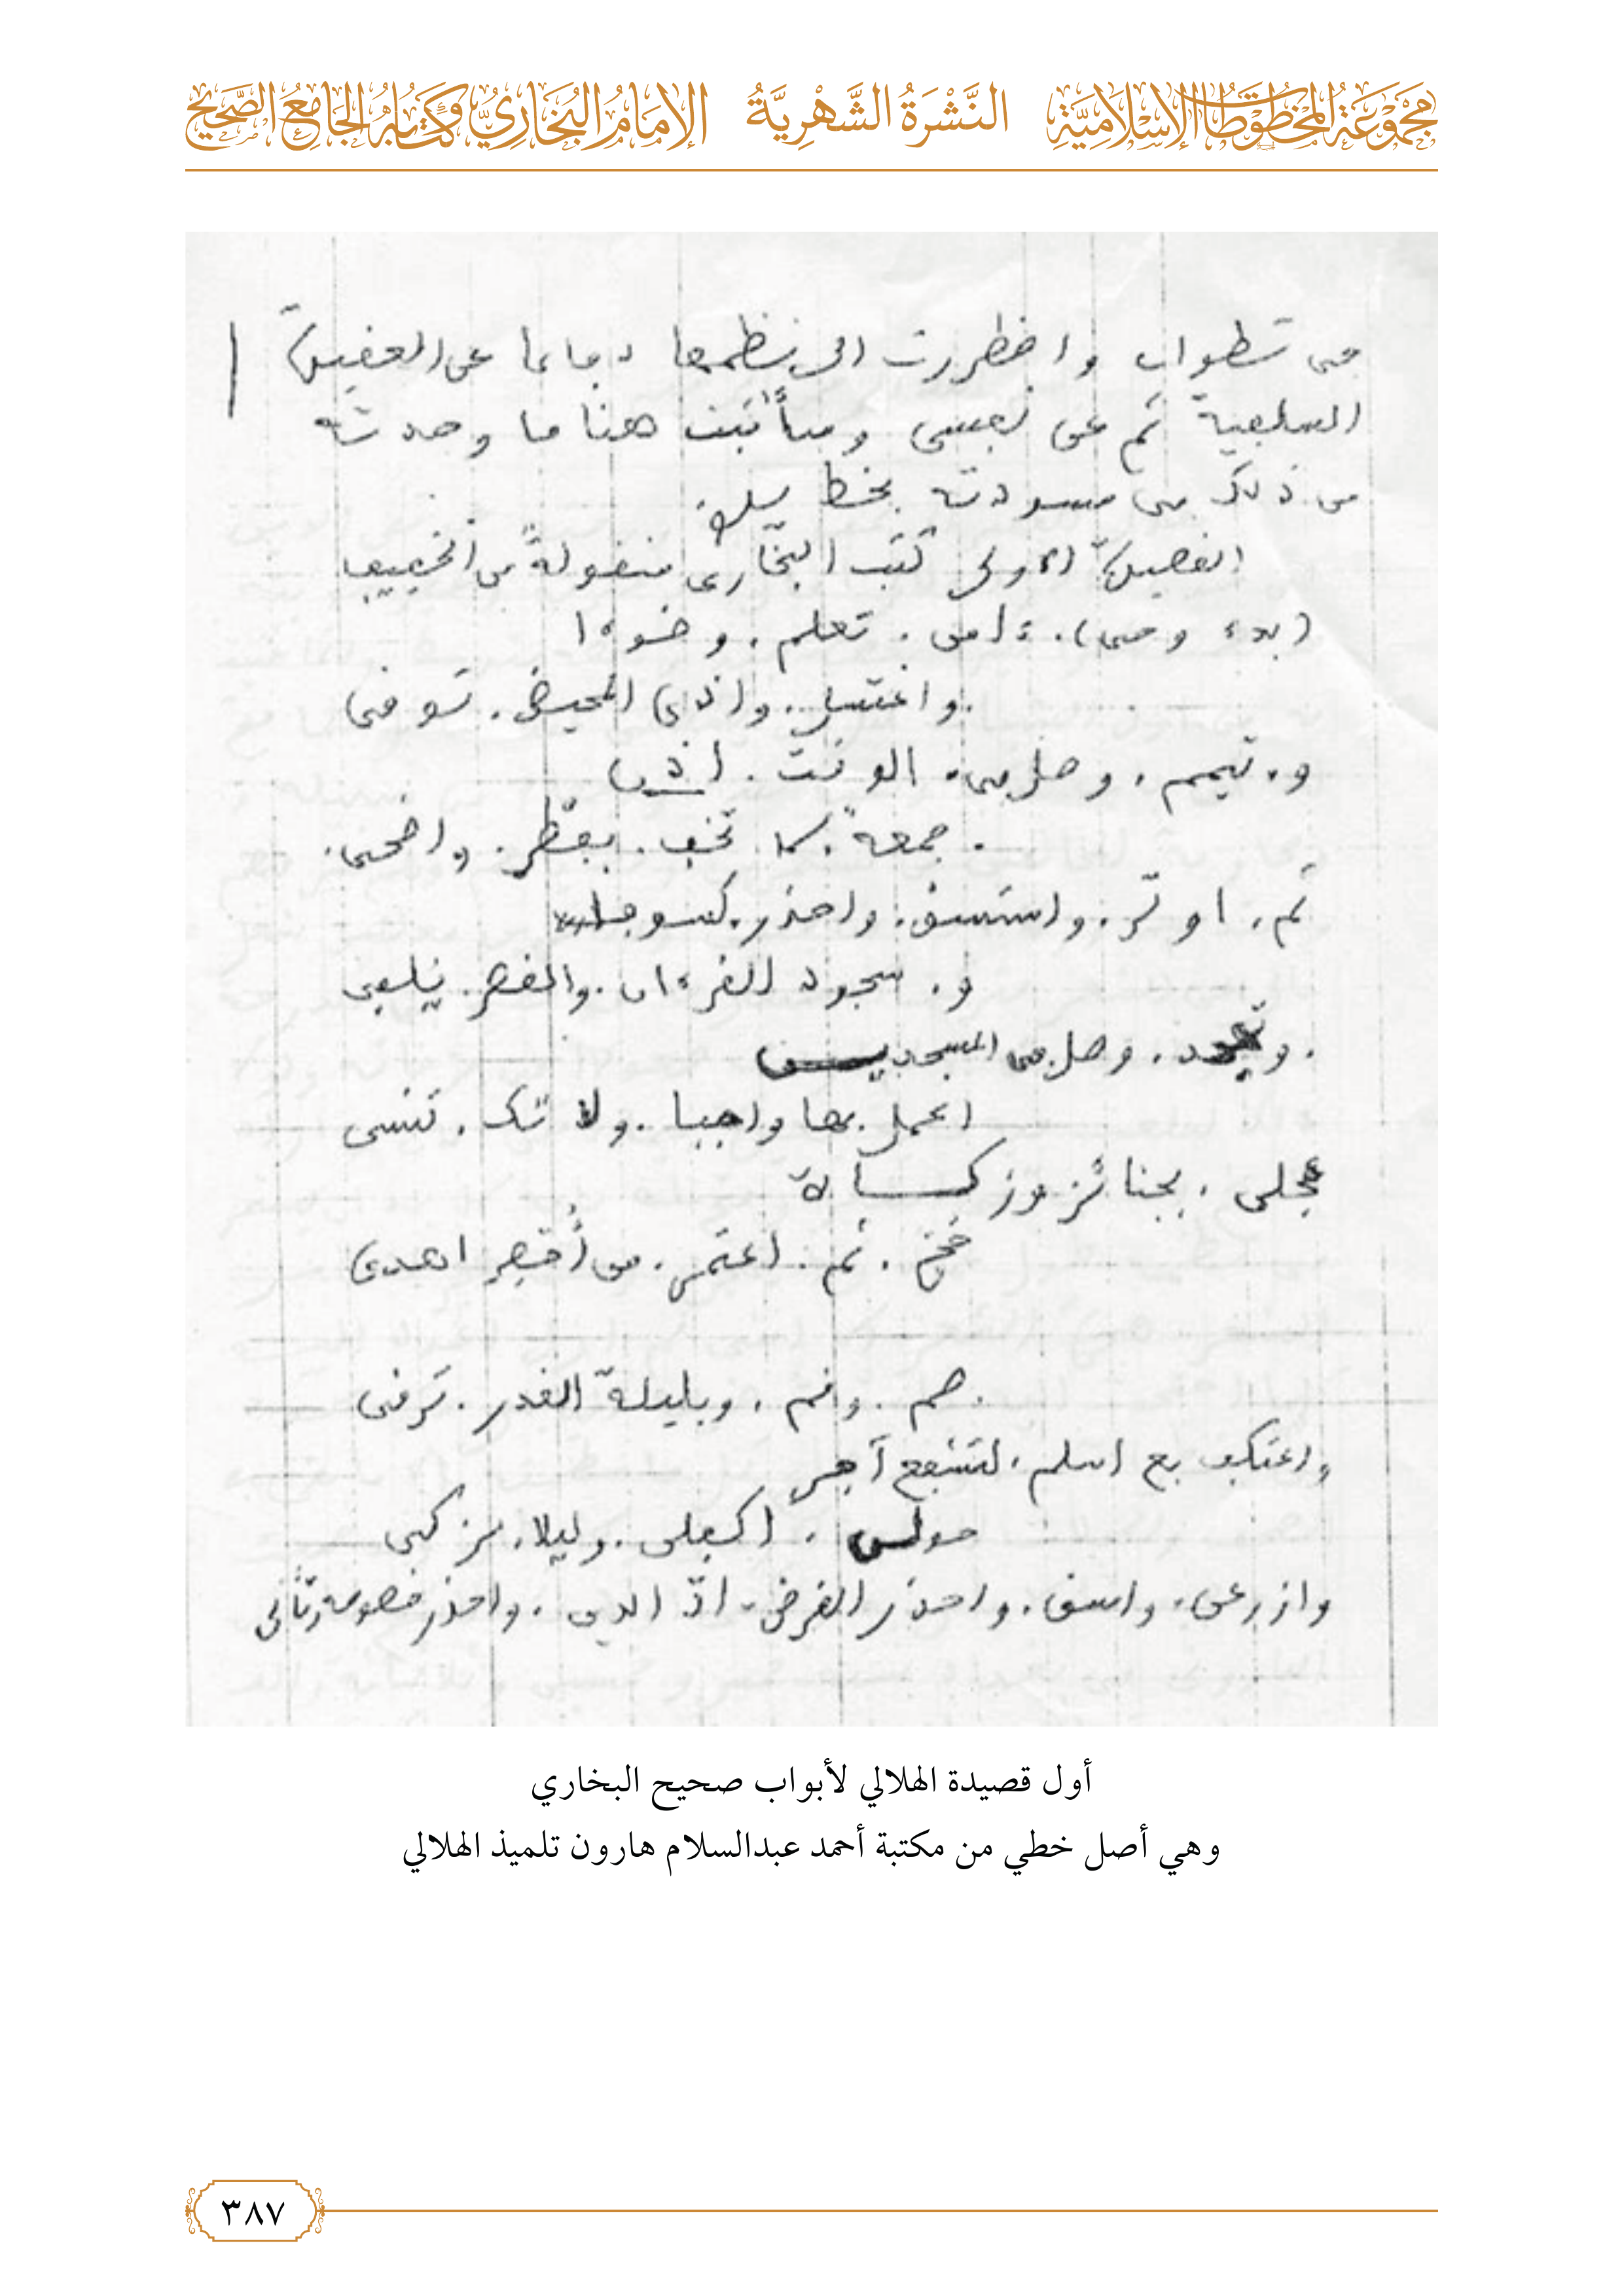 مجموعة المخطوطات الإسلامية النَّشْرَةُ الشَّهْرِيَّةُ الإمَامُ البُخَارِيُّ وَكِتَابُهُ الجَامِعُ الصَّحِيح
في تطوان واضطررت الى نظمها دفاعا عن العقيدة
السلفية ثم عن نفسي وسأثبت هنا ما وجدته
من ذلك في مسودته بخط
القصيدة الاولى كتب البخاري منقولة من الخفيف
(بدء وحي). ءامن. تعلم. وضوءا
واغتسل. واذى المحيض. توقى
و. تيمم. وصل في. الوقت. اذن
. جمعة. كا تخف. بفطر. واضحى.
ثم. اوتر. واستسق. واحذر. كسوفا
و. سجود القرءان. والقصر. يلفى
. وتهجد. وصل في المسجدين
اعمل بها واجبا. ولا تك. تنسى
عجلى. بجنائز وزكاة
فحج. ثم. اعتمر. من أحصر اهدى
. صم. وقم. وبليلة القدر. ترقى
واعتكف بع اسلم. لتشفع آجر
حولن. اكفلى. وليلا. يزكى
وازرعن. واسق. واحذر القرض. اد الدين. واحذر خصومة
أول قصيدة الهلالي لأبواب صحيح البخاري
وهي أصل خطي من مكتبة أحمد عبدالسلام هارون تلميذ الهلالي
٣٨٧